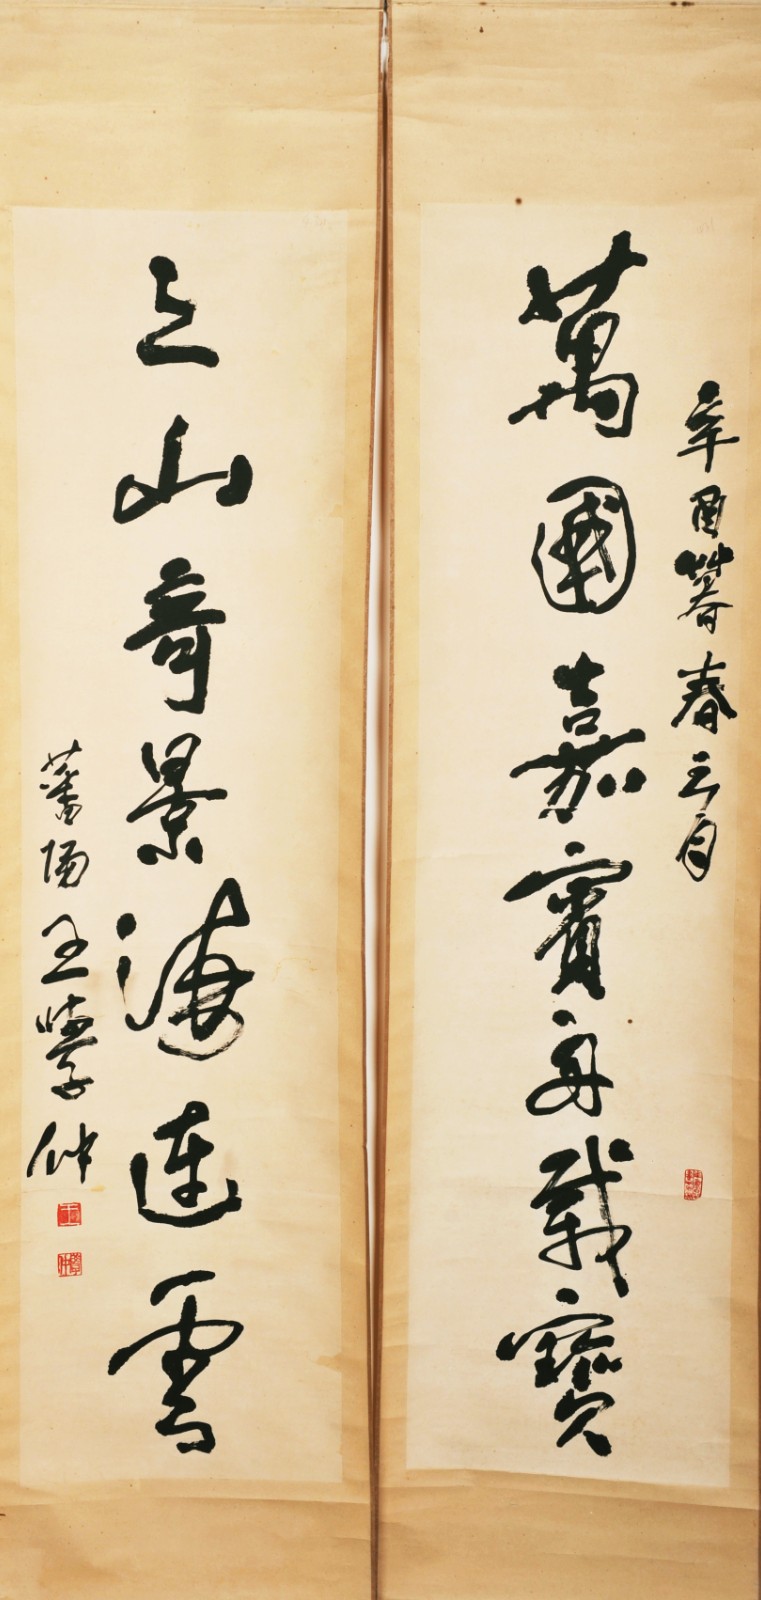 辛酉暮春三月
萬國嘉賓舟載寶
三山奇景海連雲
蕃陽王學仲